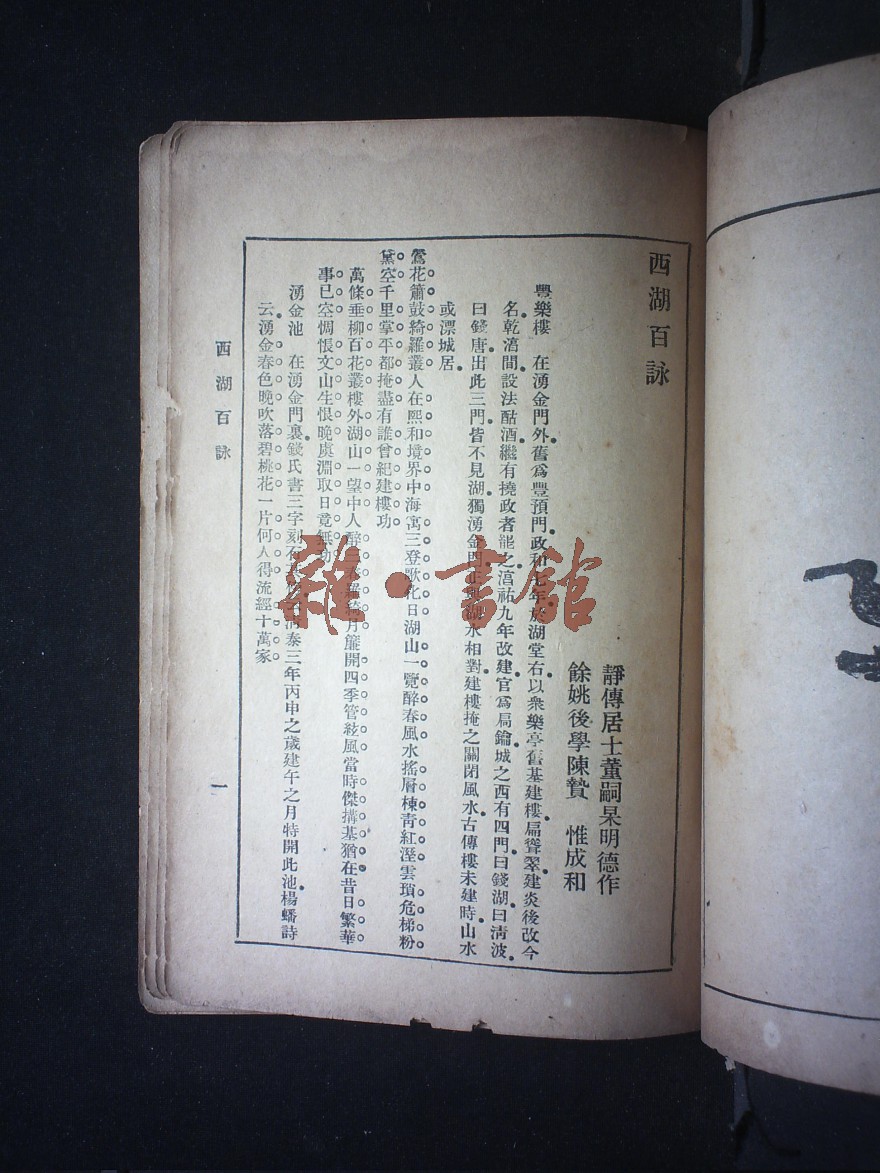 西湖百詠
靜傳居士董嗣杲明德作
餘姚後學陳贄　惟成和
豐樂樓　在湧金門外舊爲豐預門政和七年於湖堂右以衆樂亭舊基建樓扁聳翠建炎後改今
名乾湻間設法酤酒繼有撓政者能之湻祐九年改建官爲扃鑰城之西有四門曰錢湖曰清波
曰錢唐出此三門皆不見湖獨湧金門正與湖水相對建樓掩之關閉風水古傳樓未建時山水
或漂城居
鶯花簫鼓綺羅叢人在熙和境界中海寓三登歌化日湖山一覽醉春風水搖層棟靑紅溼雲瑣危梯粉
黛空千里掌平都掩盡有誰曾紀建樓功
萬條垂柳百花叢樓外湖山一望中人醉羅綺月簾開四季管絃風當時傑搆基猶在昔日繁華
事已空惆悵文山生恨晚虞淵取日竟無功
湧金池　在湧金門裏錢氏書三字刻石淸泰三年丙申之歲建午之月特開此池楊蟠詩
云湧金春色晚吹落碧桃花一片何人得流經十萬家
西湖百詠
一
雜·書館